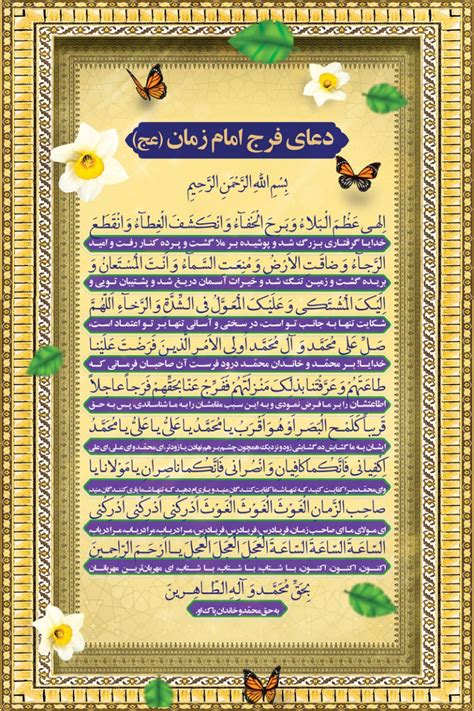 دعای فرج امام زمان (عج)
بِسْمِ اللهِ الرَّحْمَنِ الرَّحِيْمِ
اِلٰهى عَظُمَ الْبَلاءُ وَبَرِحَ الْخَفآءُ وَانْكَشَفَ الْغِطآءُ وَانْقَطَعَ
خدایا گرفتاری بزرگ شد و پوشیده بر ملا گشت و پرده کنار رفت و امید
الرَّجآءُ وَضاقَتِ الاَرْضُ وَمُنِعَتِ السَّمآءُ وَاَنْتَ الْمُسْتَعانُ وَ
بریده گشت و زمین تنگ شد و خیرات آسمان دریغ شد و پشتیبان تویی و
اِلَيْكَ الْمُشْتَكى وَعَلَيْكَ الْمُعَوَّلُ فِى الشِّدَّةِ وَالرَّخآءِ اَللّهُمَّ
شکایت تنها به جانب تو است، در سختی و آسانی تنها بر تو اعتماد است،
صَلِّ عَلى مُحَمَّدٍ وَ آلِ مُحَمَّدٍ اُولِى الاَمْرِ الَّذينَ فَرَضْتَ عَلَيْنا
خدایا! بر محمّد و خاندان محمّد درود فرست آن صاحبان فرمانی که
طاعَتَهُمْ وَعَرَّفْتَنا بِذلِكَ مَنْزِلَتَهُمْ فَفَرِّجْ عَنّا بِحَقِّهِمْ فَرَجاً عاجِلاً
اطاعتشان را بر ما فرض نمودی و به این سبب مقامشان را به ما شناساندی، پس به حق
قَريباً كَلَمْحِ الْبَصَرِ اَوْ هُوَ اَقْرَبُ يا مُحَمَّدُ يا عَلِىُّ يا عَلِىُّ يا مُحَمَّدُ
ایشان به ما گشایش ده، گشایشی زود و نزدیک همچون چشم بر هم نهادن یا زودتر، ای محمّد و ای علی، ای علی
اِكْفِيانى فَاِنَّكُما كافِيانِ وَانْصُرانى فَاِنَّكُما ناصِرانِ يا مَوْلانا يا
وای محمّد، مرا کفایت کنید که تنها شما کفایت کنندگان منید و یاری‌ام دهید که تنها شما یاری کنندگان منید
صاحِبَ الزَّمانِ الْغَوْثَ الْغَوْثَ الْغَوْثَ اَدْرِكْنى اَدْرِكْنى اَدْرِكْنى
ای مولای ما ای صاحب زمان، فریادرس، فریادرس، فریادرس، مرا دریاب، مرا دریاب، مرا دریاب
السّاعَةَ السّاعَةَ السّاعَةَ الْعَجَلَ الْعَجَلَ الْعَجَلَ يا اَرْحَمَ الرّاحِمينَ
اکنون، اکنون، اکنون، با شتاب، با شتاب، با شتاب، ای مهربان‌ترین مهربانان
بِحَقِّ مُحَمَّدٍ وَ آلِهِ الطّاهِرينَ
به حق محمّد و خاندان پاک او.